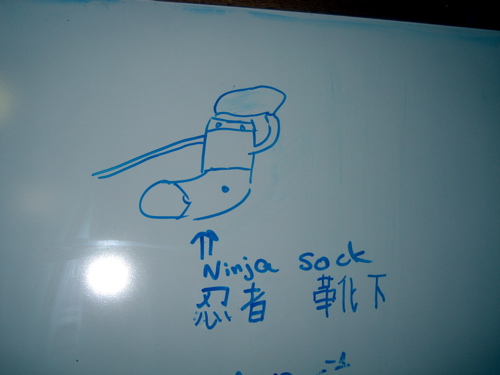 Ninja sock
忍者 靴下